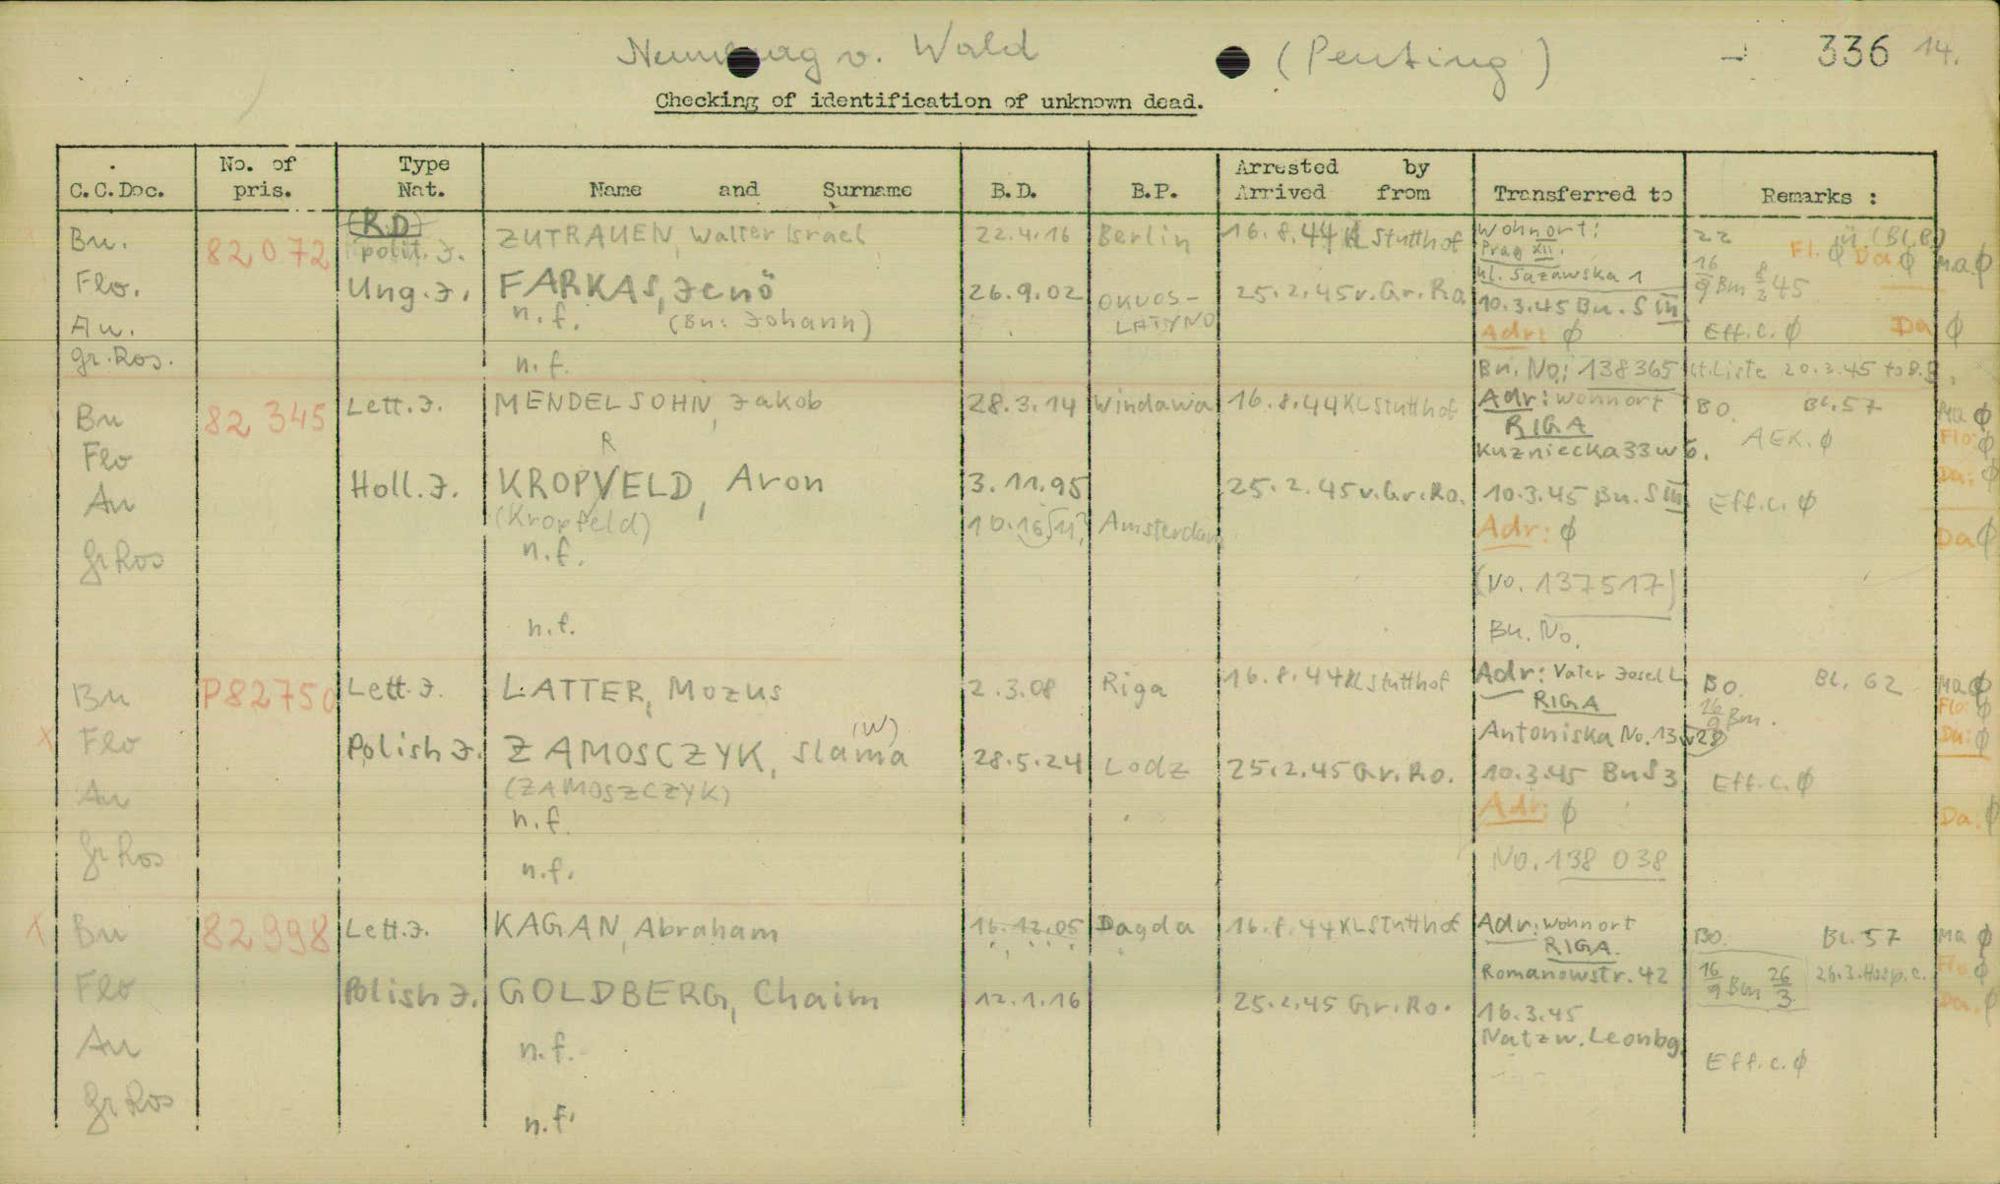 Neunburg v. Wald (Penting) - 336 14.
Checking of identification of unknown dead.
C.C.Doc. No. of pris. Type Nat. Name and Surname B.D. B.P. Arrested by Arrived from Transferred to Remarks :
(R.D)
Bu. 82072 polit. J. ZUTRAUEN, Walter Israel 22.4.16 Berlin 16.8.44 KL Stutthof Wohnort: 22 ü. (Bl. 8)
Prag XII. Fl. ϕ Da ϕ Ma ϕ
kl. Sazawska 1 16/9 Bu 8/3 45
Flo. Ung. J. FARKAS, Jenö 26.9.02 OKVOS- 25.2.45 v. Gr. Ro 10.3.45 Bu. S III
Au. n.f. (Bu: Johann) LATYNO Adr: ϕ Eff.c. ϕ Da ϕ
gr. Ros. n.f. Bu. No: 138365 lt. Liste 20.3.45 to
Bu 82345 Lett. J. MENDELSOHN, Jakob 28.3.14 Windawa 16.8.44 KL Stutthof Adr: Wohnort BO. Bl. 57 Ma ϕ
R RIGA AEK. ϕ Flo ϕ
Flo Kuzniecka 33 w 6. Da: ϕ
Holl. J. KROPVELD, Aron 3.11.95 25.2.45 v. Gr. Ro. 10.3.45 Bu. S III Eff.c. ϕ
Au (Kropfeld) 10.16 Amsterdam Adr: ϕ Da ϕ
n.f.
gr Ros (No. 137517)
n.f. Bu. No.
Bu P82750 Lett. J. LATTER, Mozus 2.3.08 Riga 16.8.44 KL Stutthof Adr: Vater Josel L BO. Bl. 62 Ma ϕ
RIGA 16/9 Bu. Flo: ϕ
X Flo (W) Antoniska No. 13 w 28 Da: ϕ
Polish J. ZAMOSCZYK, Slama 28.5.24 Lodz 25.2.45 Gr. Ro. 10.3.45 Bu S 3 Eff.c. ϕ
Au (ZAMOSZCZYK) Adr: ϕ Da. ϕ
n.f.
gr Ros n.f. No. 138 038
X Bu 82998 Lett. J. KAGAN, Abraham 16.12.05 Dagda 16.8.44 KL Stutthof Adr: Wohnort BO. Bl. 57 Ma ϕ
RIGA. Flo ϕ
Flo Romanowstr. 42 16/9 Bu 26/3 26.3. Hosp. c.
Polish J. GOLDBERG, Chaim 12.1.16 25.2.45 Gr. Ro. 16.3.45 Da. ϕ
Au n.f. Natzw. Leonbg.
Eff.c. ϕ
gr Ros n.f.